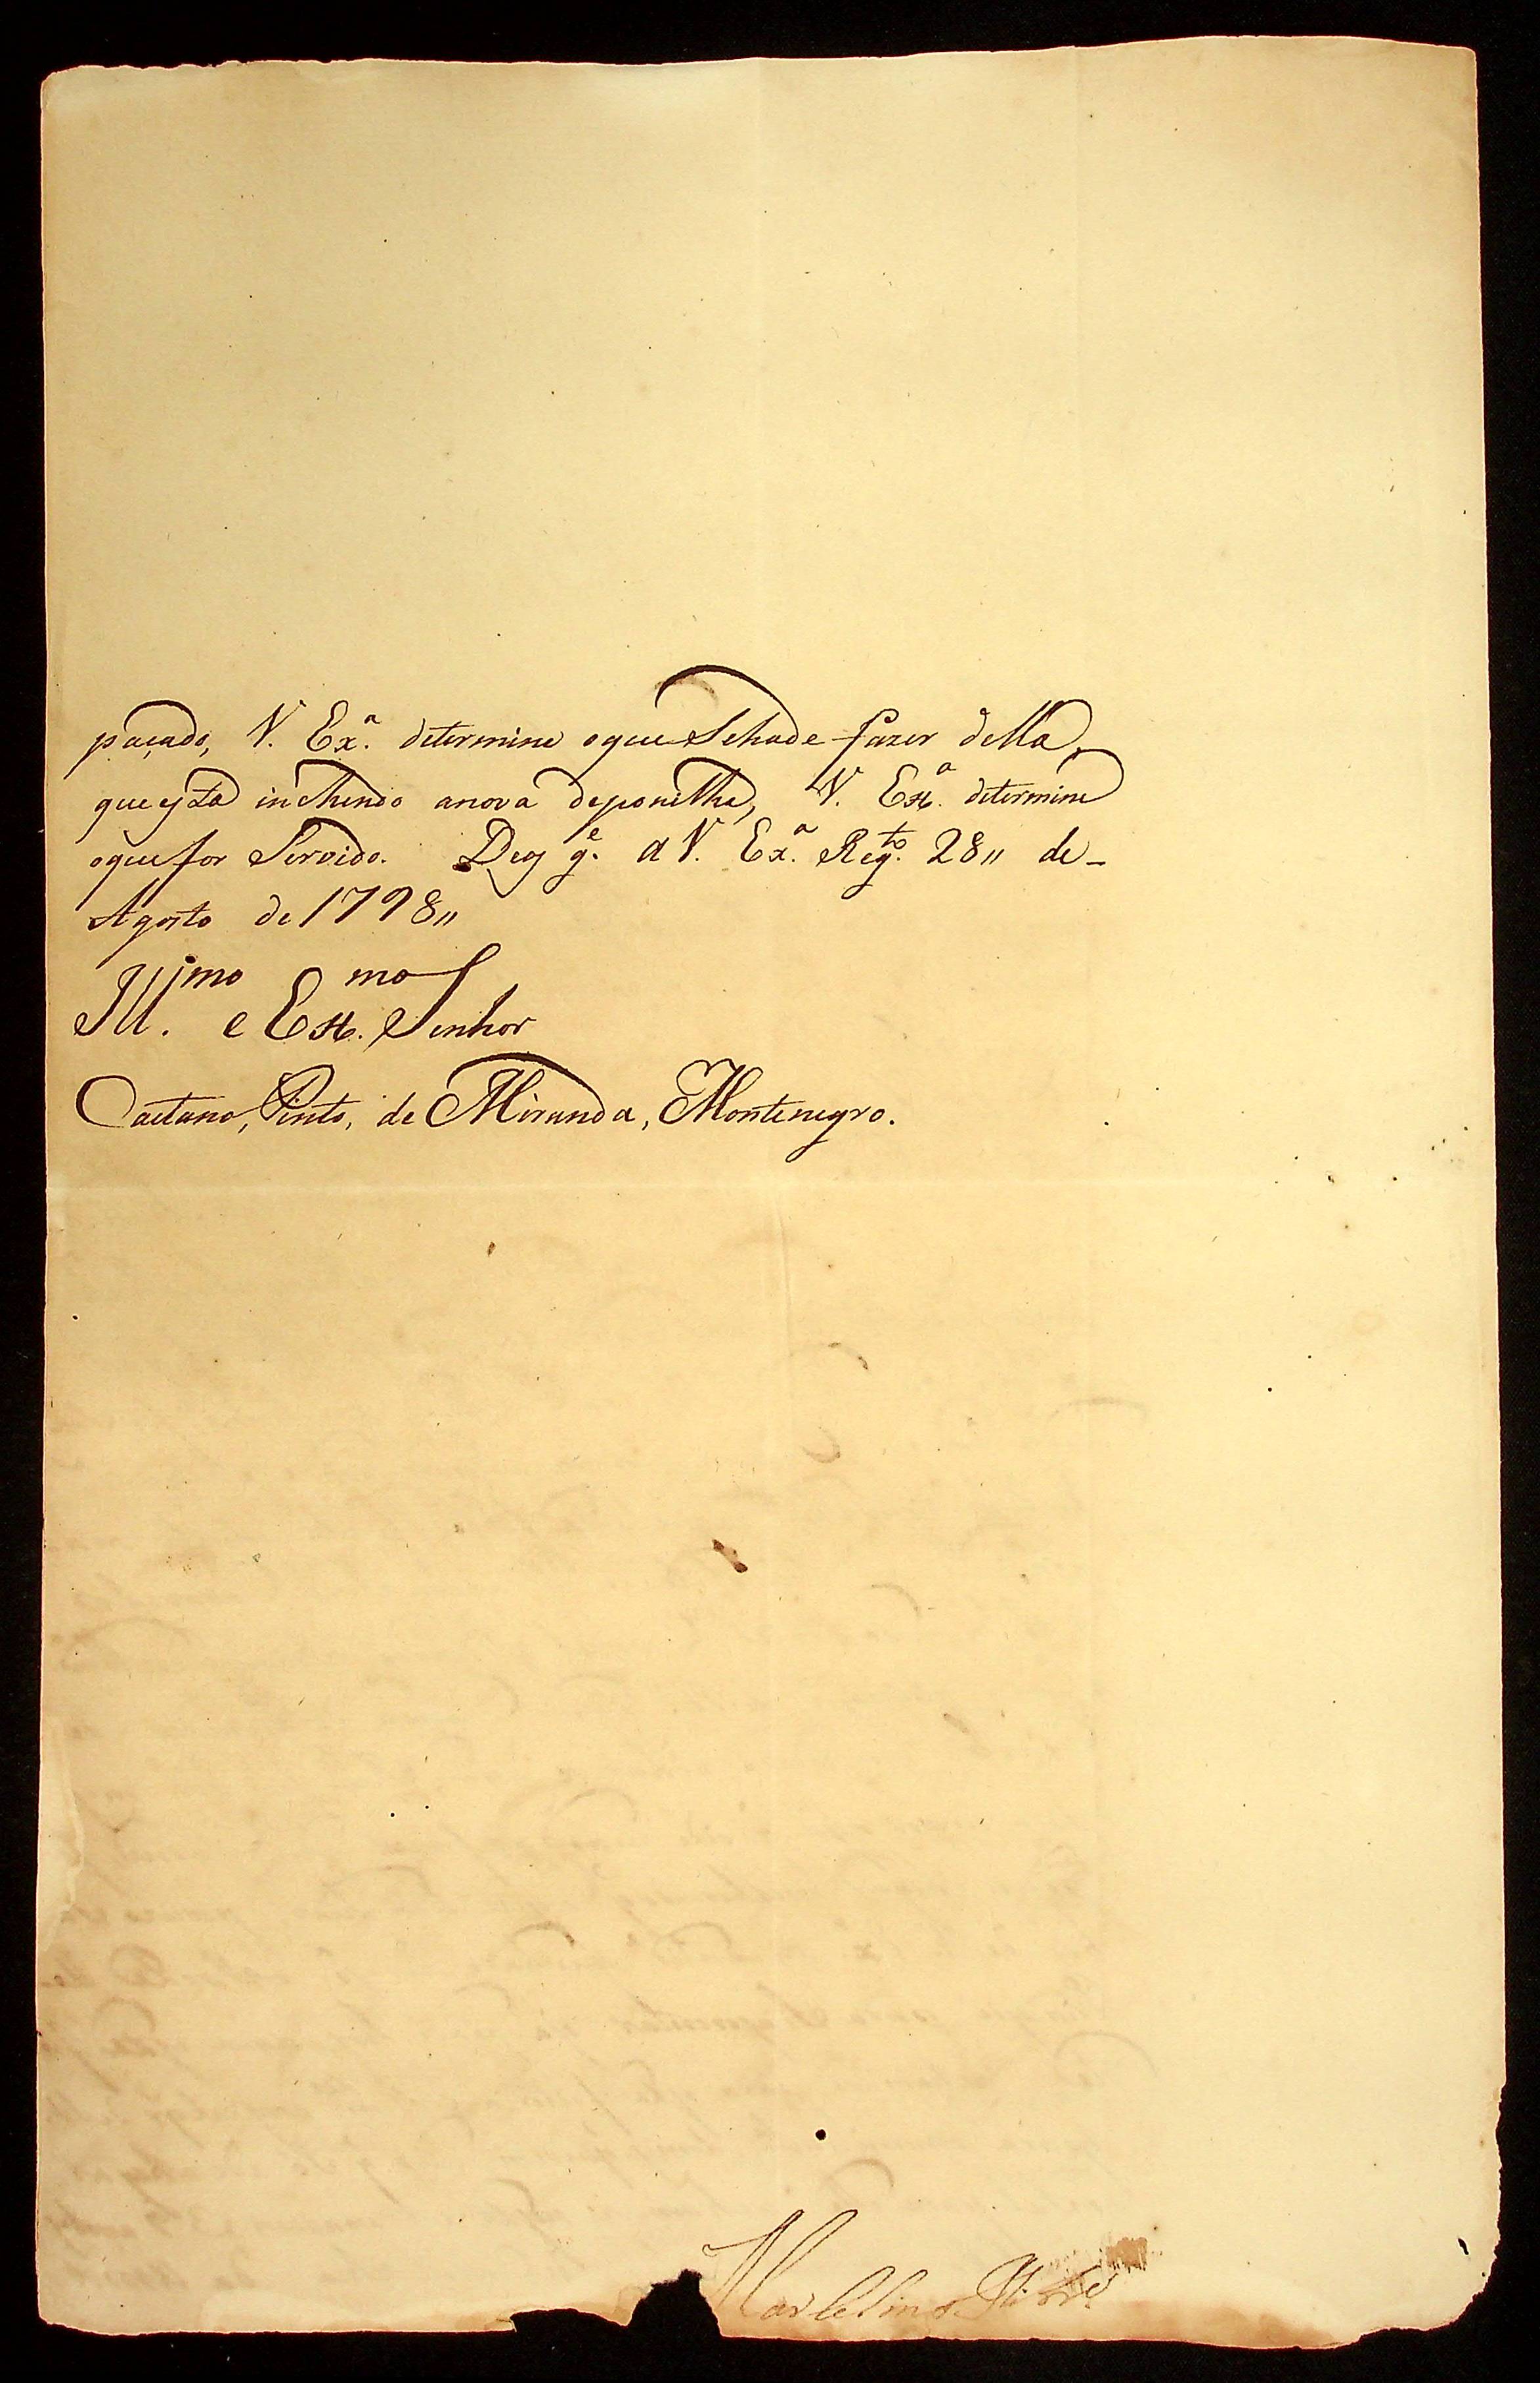 paçado, V. Exª. determine oque Sehade fazer della,
que esta inchendo anova deponilha, V. Exª. determine
oque for Servido. Deos gᵉ. a V. Exª. Regᵗᵒ. 28,, de-
Agosto de 1798,,
Illᵐᵒ. e Exᵐᵒ. Senhor
Caetano, Pinto, de Miranda, Montenegro.
Marcelino